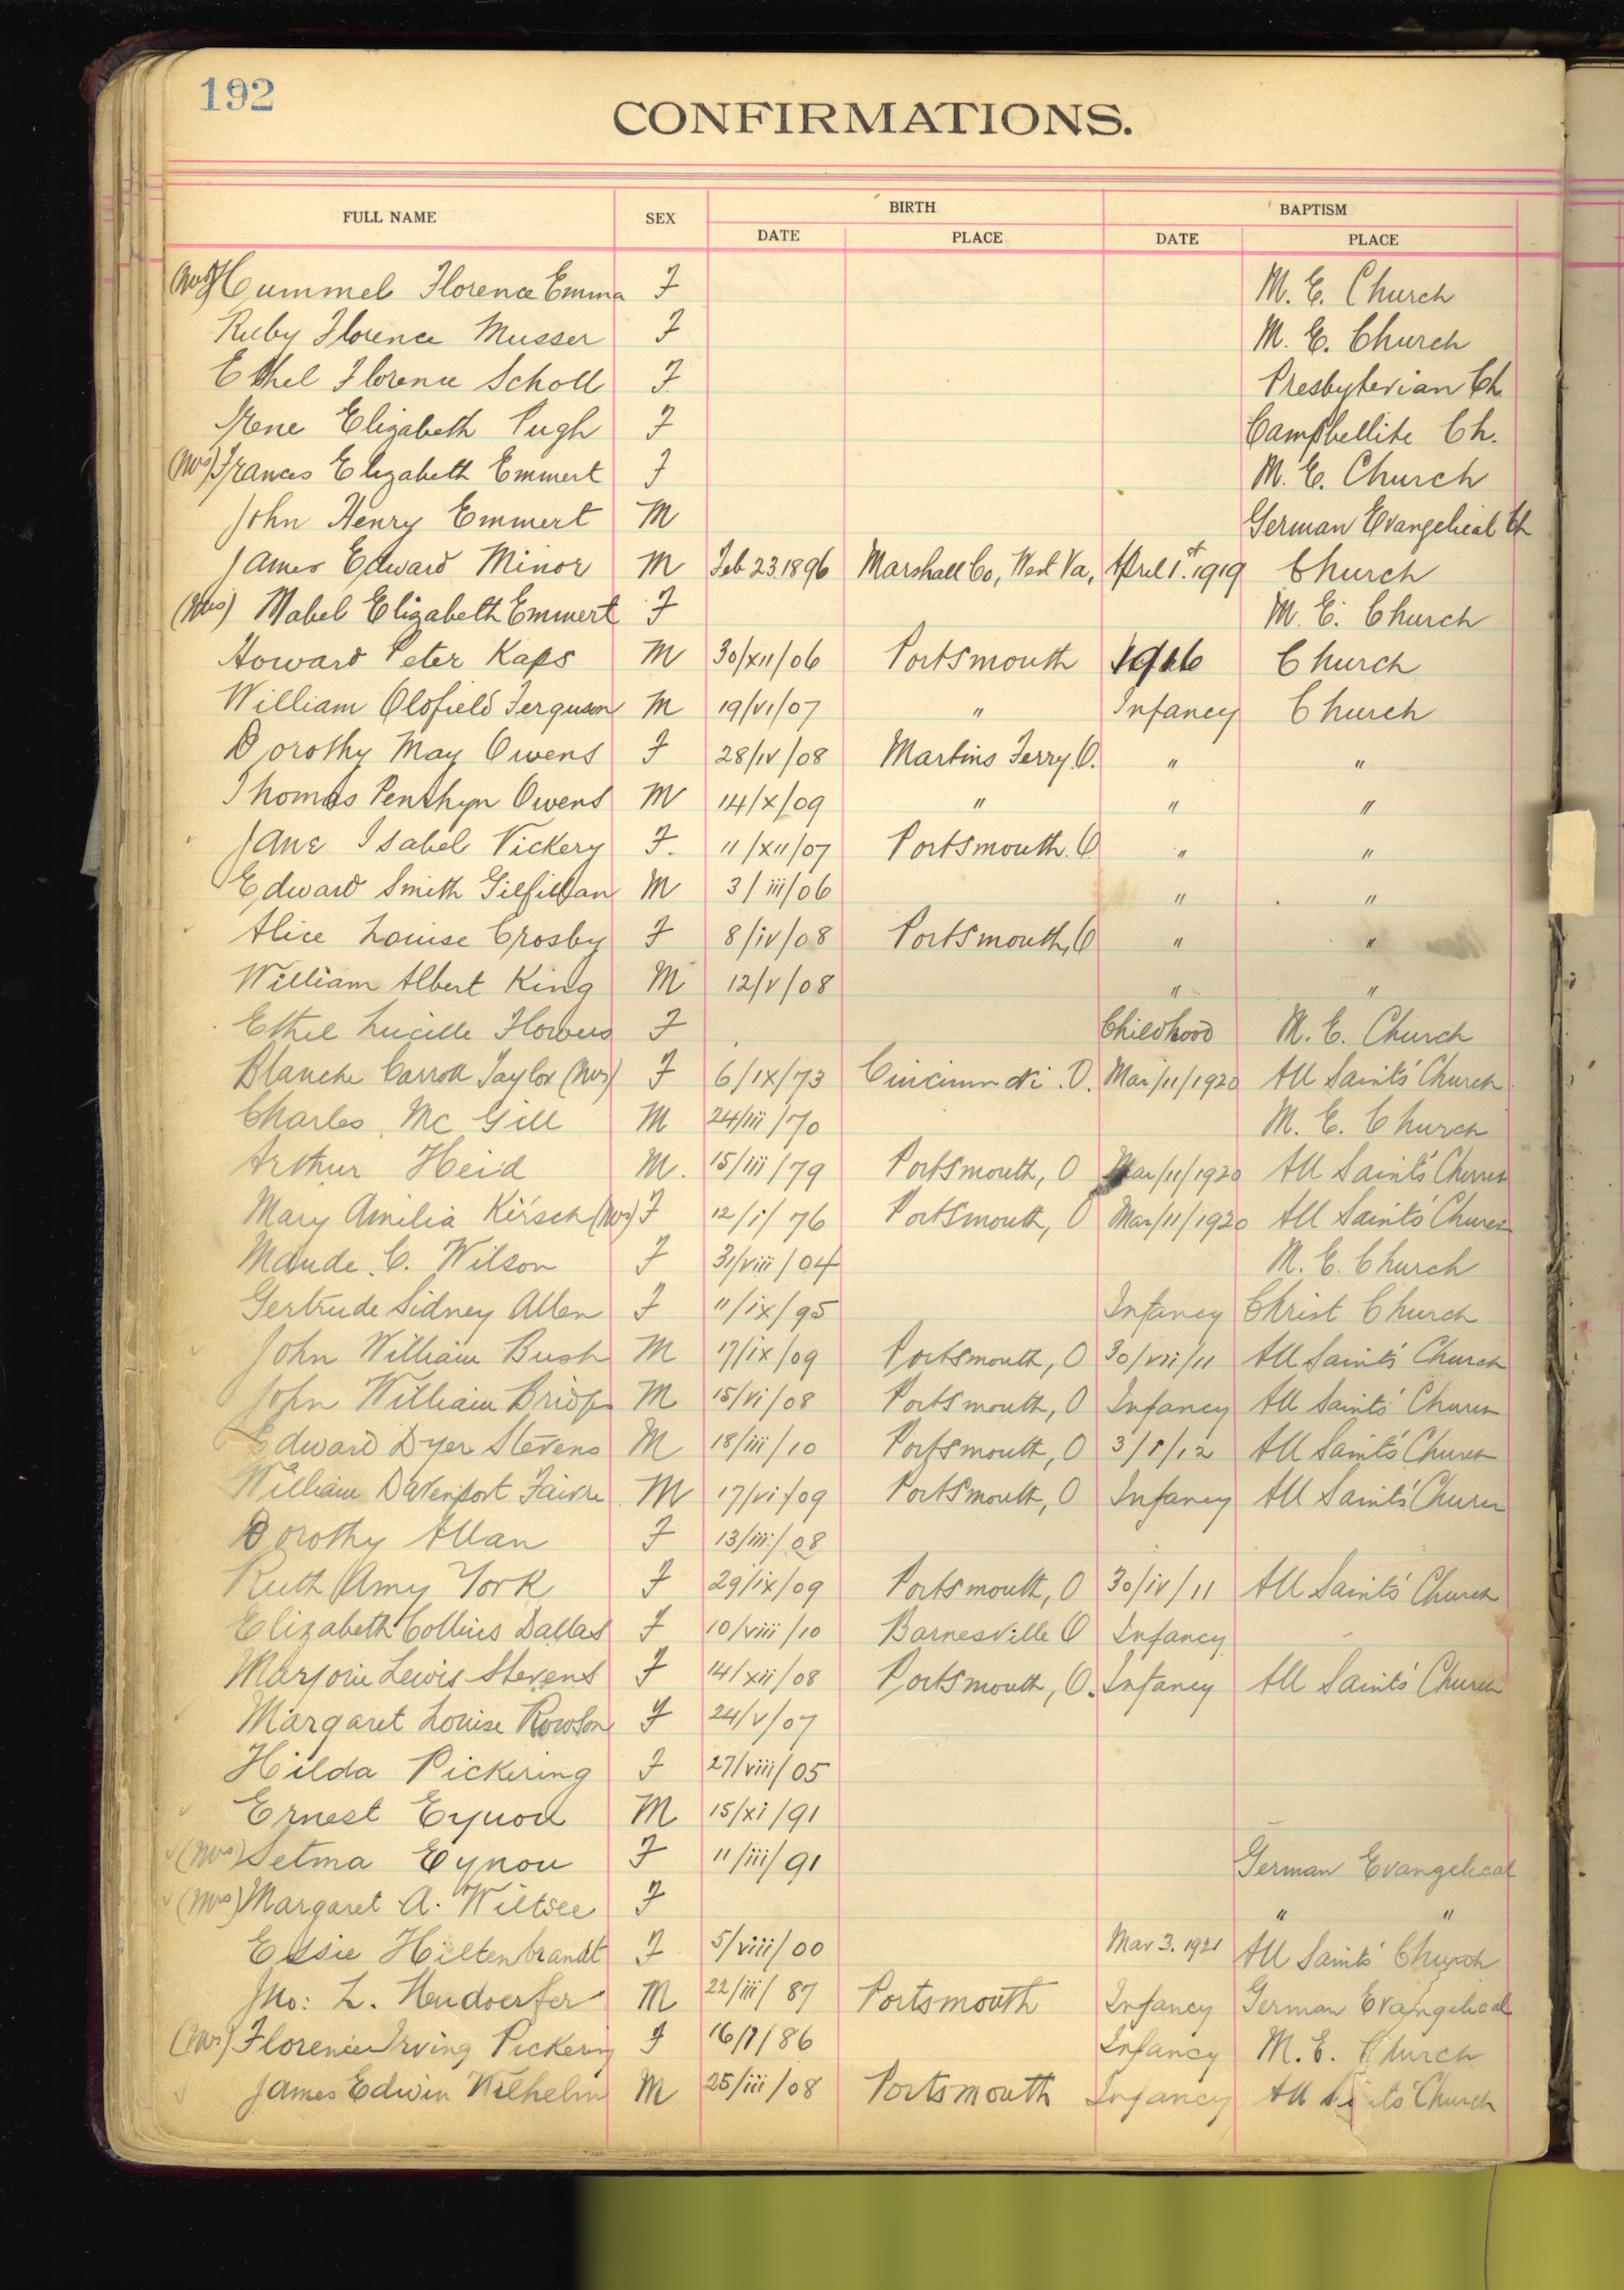 192
CONFIRMATIONS.
FULL NAME SEX BIRTH BAPTISM
DATE PLACE DATE PLACE
(Mrs) Hummel Florence Emma F M. E. Church
Ruby Florence Musser F M. E. Church
Ethel Florence Scholl F Presbyterian Ch.
Irene Elizabeth Pugh F Campbellite Ch.
(Mrs) Frances Elizabeth Emmert F M. E. Church
John Henry Emmert M German Evangelical Ch
James Edward Minor M Feb 23 1896 Marshall Co, West Va, April 1st. 1919 Church
(Mrs) Mabel Elizabeth Emmert F M. E. Church
Howard Peter Kaps M 30/XII/06 Portsmouth Church
William Oldfield Ferguson M 19/VI/07 " Infancy Church
Dorothy May Owens F 28/IV/08 Martins Ferry O. " "
Thomas Penrhyn Owens M 14/X/09 " " "
Jane Isabel Vickery F. 11/XII/07 Portsmouth. O " "
Edward Smith Gilfillan M 3/iii/06 " "
Alice Louise Crosby F 8/IV/08 Portsmouth, O " "
William Albert King M 12/V/08 " "
Ethel Lucille Flowers F Childhood M. E. Church
Blanche Carroll Taylor (Mrs) F 6/IX/73 Cincinnati. O. Mar/11/1920 All Saints' Church
Charles Mc Gill M 24/iii/70 M. E. Church
Arthur Heid M. 15/iii/79 Portsmouth, O Mar/11/1920 All Saints' Church
Mary Amilia Kirsch (Mrs) F 12/i/76 Portsmouth, O Mar/11/1920 All Saints' Church
Maude C. Wilson F 31/viii/04 M. E. Church
Gertrude Sidney Allen F 11/ix/95 Infancy Christ Church
John William Bush M 17/ix/09 Portsmouth, O 30/vii/11 All Saints' Church
John William M 15/vi/08 Portsmouth, O Infancy All Saints' Church
Edward Dyer Stevens M 18/iii/10 Portsmouth, O 3/1/12 All Saints' Church
William Davenport Faivre M 17/vi/09 Portsmouth, O Infancy All Saints' Church
Dorothy Allan F 13/iii/08
Ruth Amy York F 29/ix/09 Portsmouth, O 30/iv/11 All Saints' Church
Elizabeth Collins Dallas F 10/viii/10 Barnesville O Infancy
Marjorie Lewis Stevens F 14/xii/08 Portsmouth, O. Infancy All Saints' Church
Margaret Louise F 24/V/07
Hilda Pickering F 27/viii/05
Ernest Eynon M 15/xi/91
(Mrs) Selma Eynon F 11/iii/91 German Evangelical
(Mrs) Margaret A. Wiltsee F " "
Essie Hiltenbrandt F 5/viii/00 Mar 3. 1921 All Saints' Church
Jno: L. Neudoerfer M 22/iii/87 Portsmouth Infancy German Evangelical
(Mrs) Florence Irving Pickering F 16/1/86 Infancy M. E. Church
James Edwin Wilhelm M 25/iii/08 Portsmouth Infancy All Saints' Church